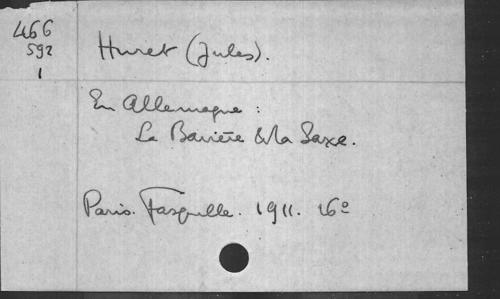 466
592
1
Huret (Jules).
En Allemagne :
La Bavière & la Saxe.
Paris. Fasquelle. 1911. 16º